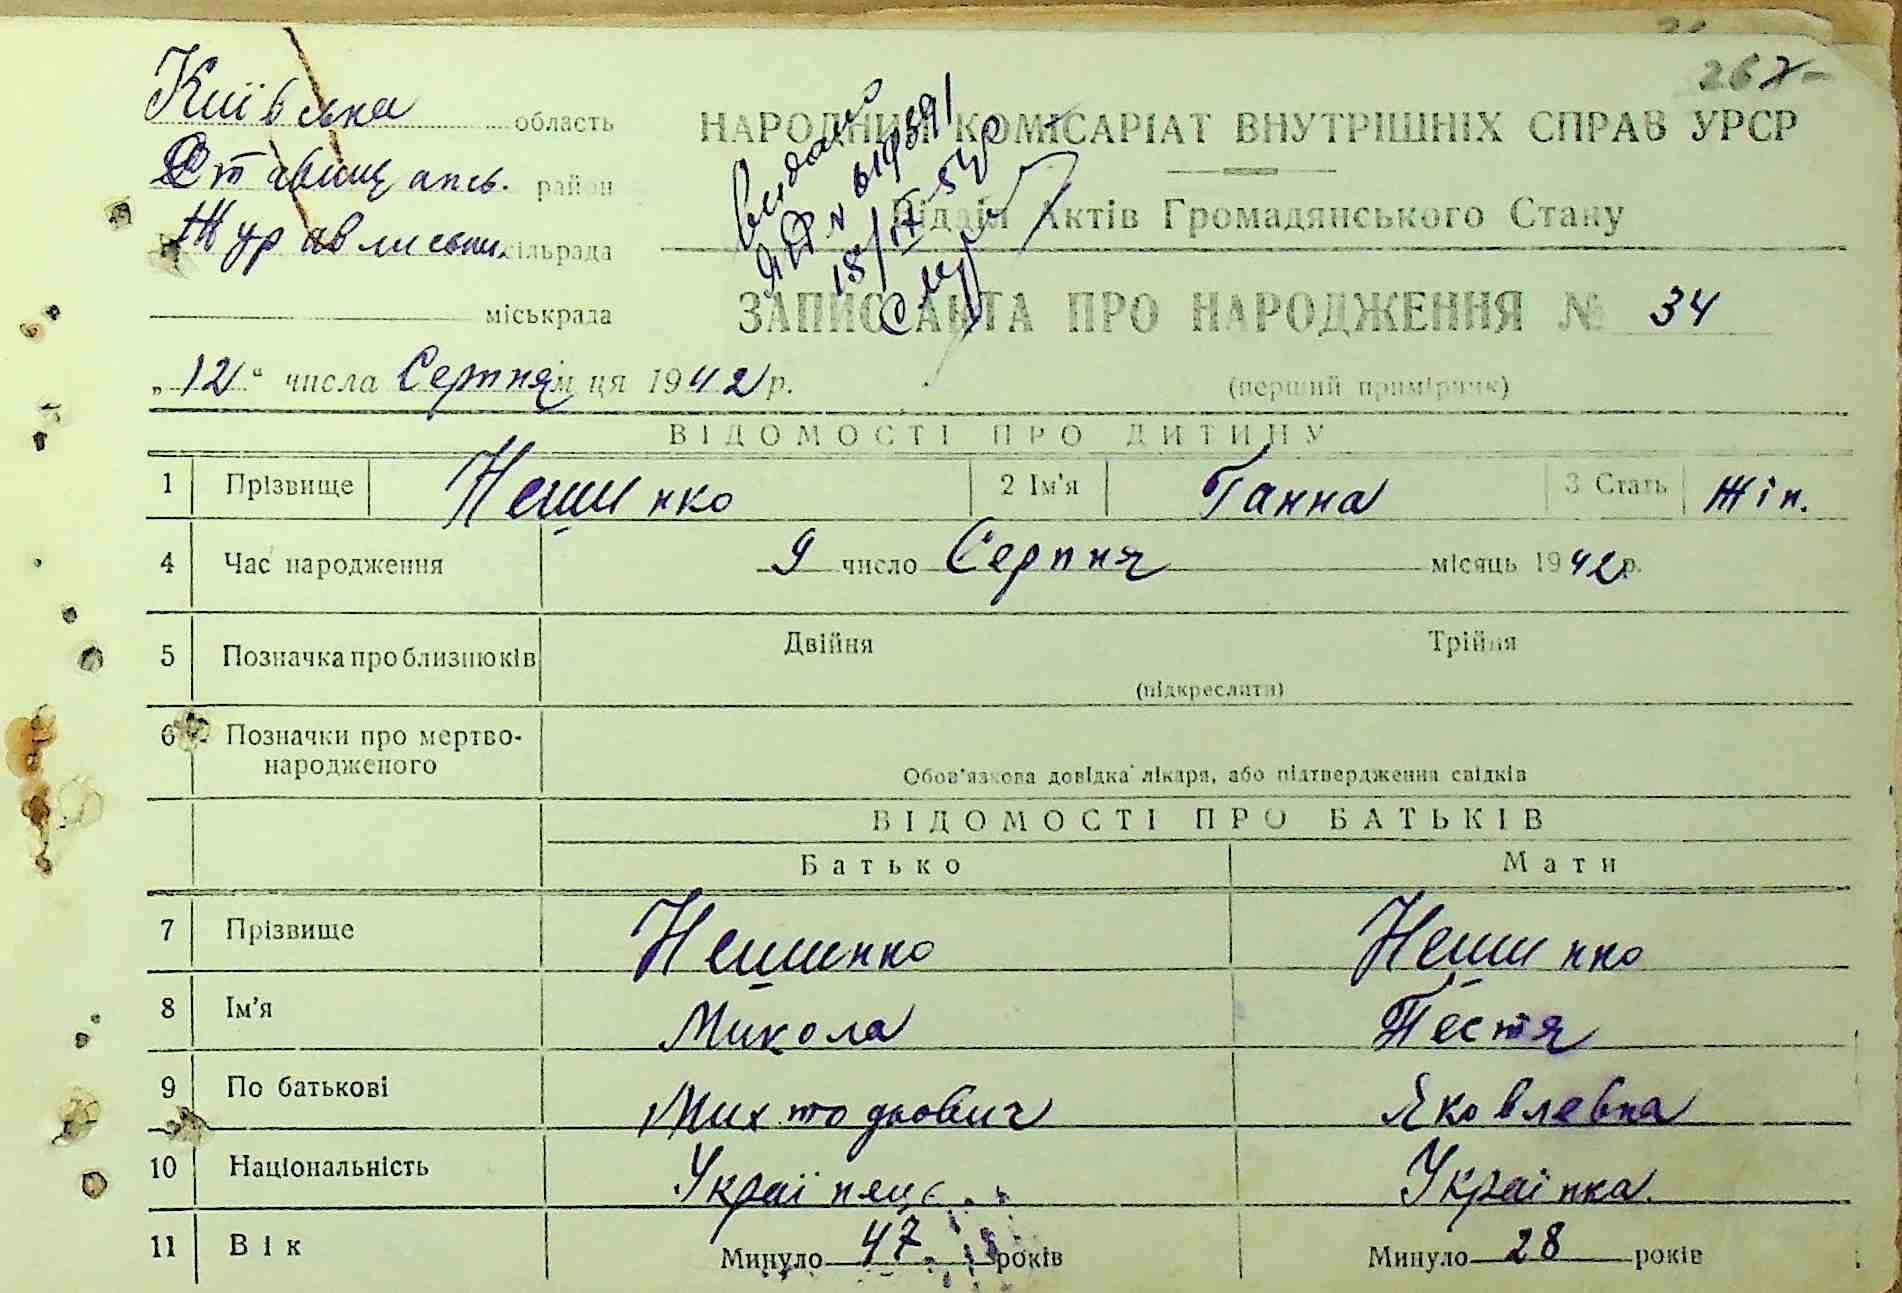 267-
Київська область
НАРОДНИЙ КОМІСАРІАТ ВНУТРІШНІХ СПРАВ УРСР
Ставищанськ. район
Відділ Актів Громадянського Стану
сільрада
міськрада
видано
15/IV-54р
ЗАПИС АКТА ПРО НАРОДЖЕННЯ № 34
„12“ числа Серпня м ця 1942 р.
(перший примірник)
ВІДОМОСТІ ПРО ДИТИНУ
1 Прізвище Нешинко 2 Ім'я Ганна 3 Стать Жін.
4 Час народження 9 число Серпня місяць 1942 р.
5 Позначка про близнюків Двійня Трійня
(підкреслити)
6 Позначки про мертво-
народженого
Обов'язкова довідка лікаря, або підтвердження свідків
ВІДОМОСТІ ПРО БАТЬКІВ
Батько Мати
7 Прізвище Нешинко Нешинко
8 Ім'я Микола Тестя
9 По батькові Яковлевна
10 Національність Українец Українка.
11 Вік Минуло 47 років Минуло 28 років